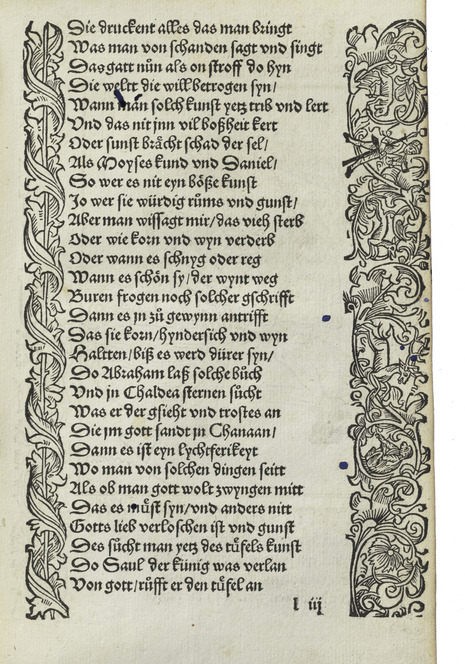 Die druckent alles das man bringt
Was man von schanden sagt vnd singt
Das gatt nůn als on stroff do hyn
Die weltt die will betrogen syn/
Wann man solch kunst yetz trib vnd lert
Vnd das nit jnn vil boßheit kert
Oder sunst brächt schad der sel/
Als Moyses kund vnd Daniel/
So wer es nit eyn böße kunst
Jo wer sie würdig růms vnd gunst/
Aber man wissagt mir/das vieh sterb
Oder wie korn vnd wyn verderb
Oder wann es schnyg oder reg
Wann es schön sy/der wynt weg
Buren frogen noch solcher gschrifft
Dann es jn zů gewynn antrifft
Das sie korn/hyndersich vnd wyn
Haltten/biß es werd dürer syn/
Do Abraham laß solche bůch
Vnd jn Chaldea sternen sůcht
Was er der gsieht vnd trostes an
Die jm gott sandt jn Chanaan/
Dann es ist eyn lychtferikeyt
Wo man von solchen dingen seitt
Als ob man gott wolt zwyngen mitt
Das es můst syn/vnd anders nitt
Gotts lieb verloschen ist vnd gunst
Des sůcht man yetz des tüfels kunst
Do Saul der künig was verlan
Von gott/rüfft er den tüfel an
l iij